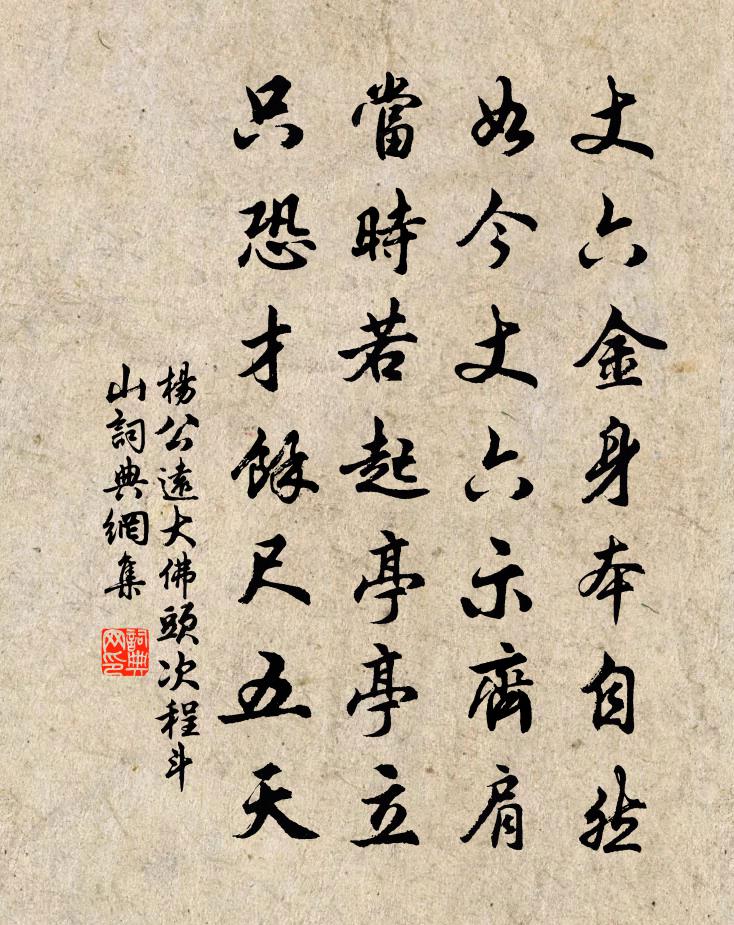 丈六金身本自然
如今丈六示齊肩
當時若起亭亭立
只恐才餘尺五天
楊公遠大佛頭次程斗
山詞典網集
詞典
网印